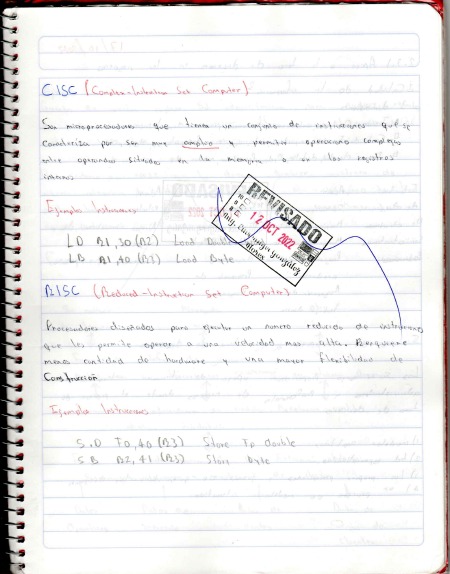 CISC (Complex-Instruction Set Computer)
Son microprocesadores que tienen un conjunto de instrucciones que se
caracteriza por ser muy amplio y permitir operaciones complejas
entre operandos situados en la memoria o en los registros
internos
Ejemplos Instrucciones
LD R1,30(R2) Load Double
LB R1,40(R3) Load Byte
REVISADO
12 OCT 2022
RISC (Reduced-Instruction Set Computer)
Procesadores diseñados para ejecutar un numero reducido de instrucciones
que les permite operar a una velocidad mas alta. Requieren
menos cantidad de hardware y una mayor flexibilidad de
Construcción
Ejemplos Instrucciones
S.D F0,40(R3) Store Fp double
SB R2,41(R3) Store byte